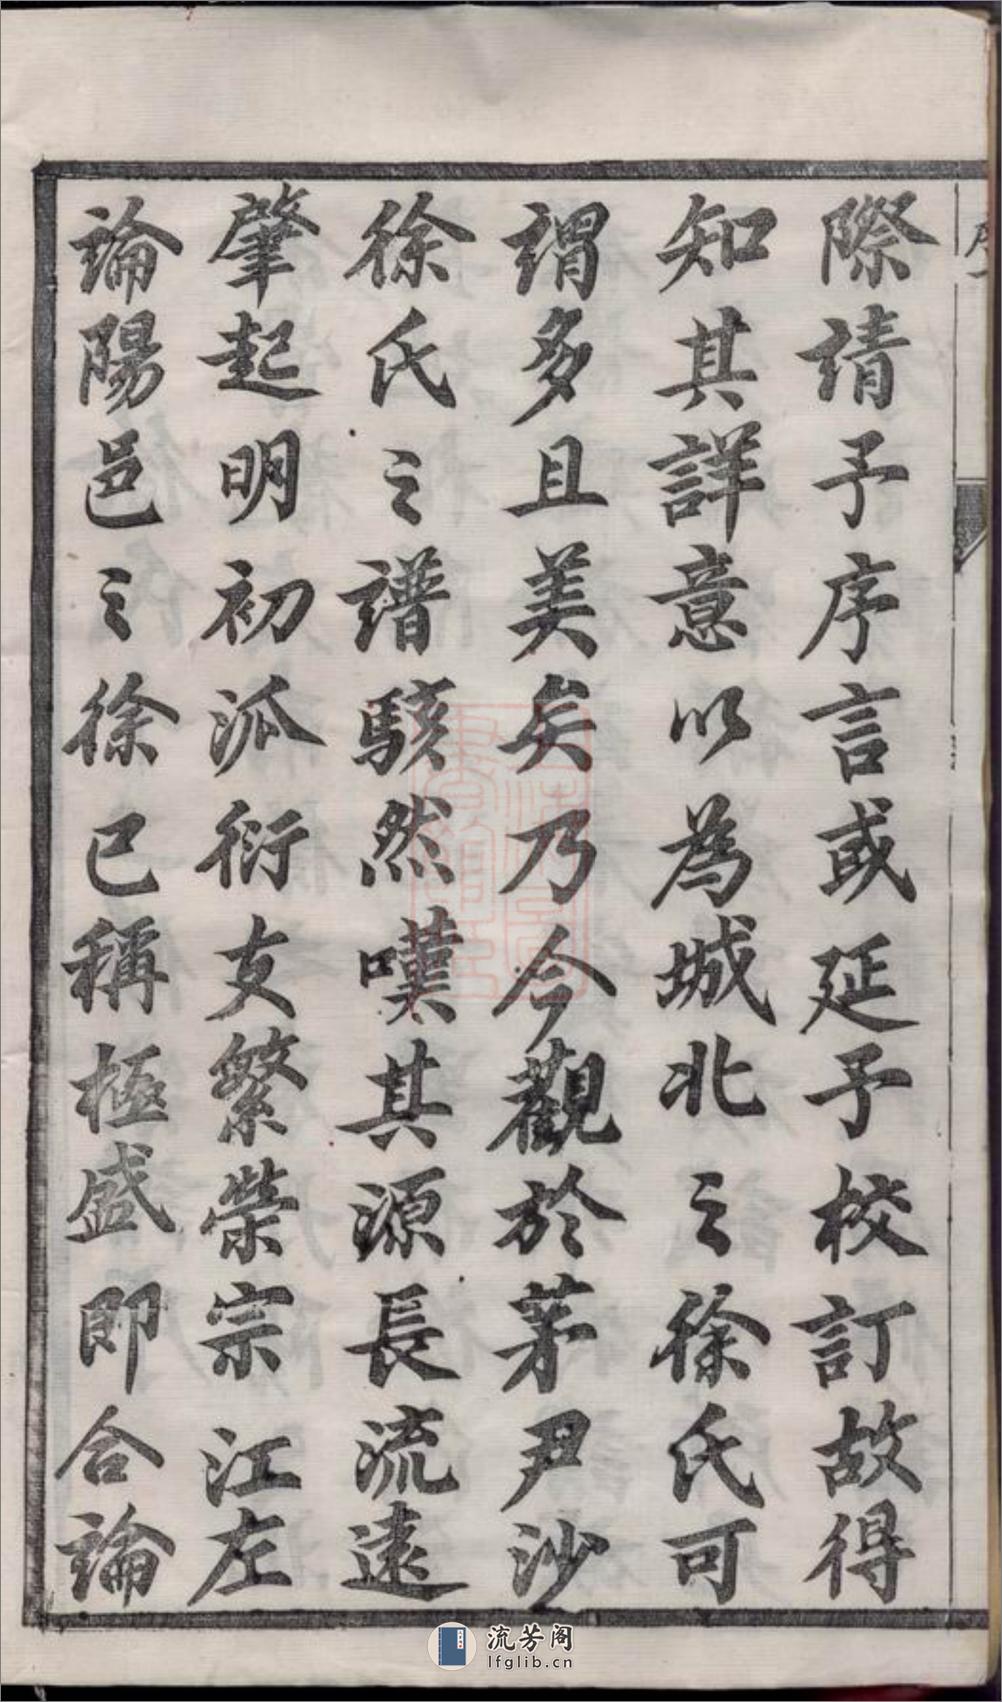 際請予序言或延予校訂故得
知其詳意以為城北之徐氏可
謂多且美矣乃今觀於茅尹沙
徐氏之譜駭然嘆其源長流遠
肇起明初派衍支繁榮宗江左
論陽邑之徐已稱極盛即合論
流芳阁
lfglib.cn